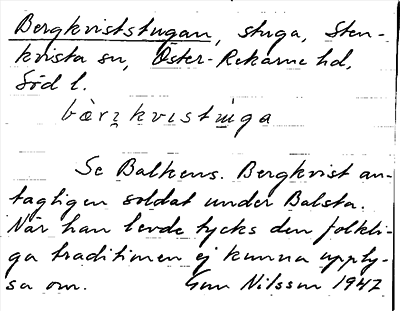 Bergkviststugan, stuga, Sten-
kvista sn, Öster-Rekarne hd,
Söd l.
bàrʒkvistıŋga
Se Balkens. Bergkvist an-
tagligen soldat under Balsta.
När han levde tycks den folkli-
ga traditionen ej kunna upply-
sa om. Gun Nilsson 1947